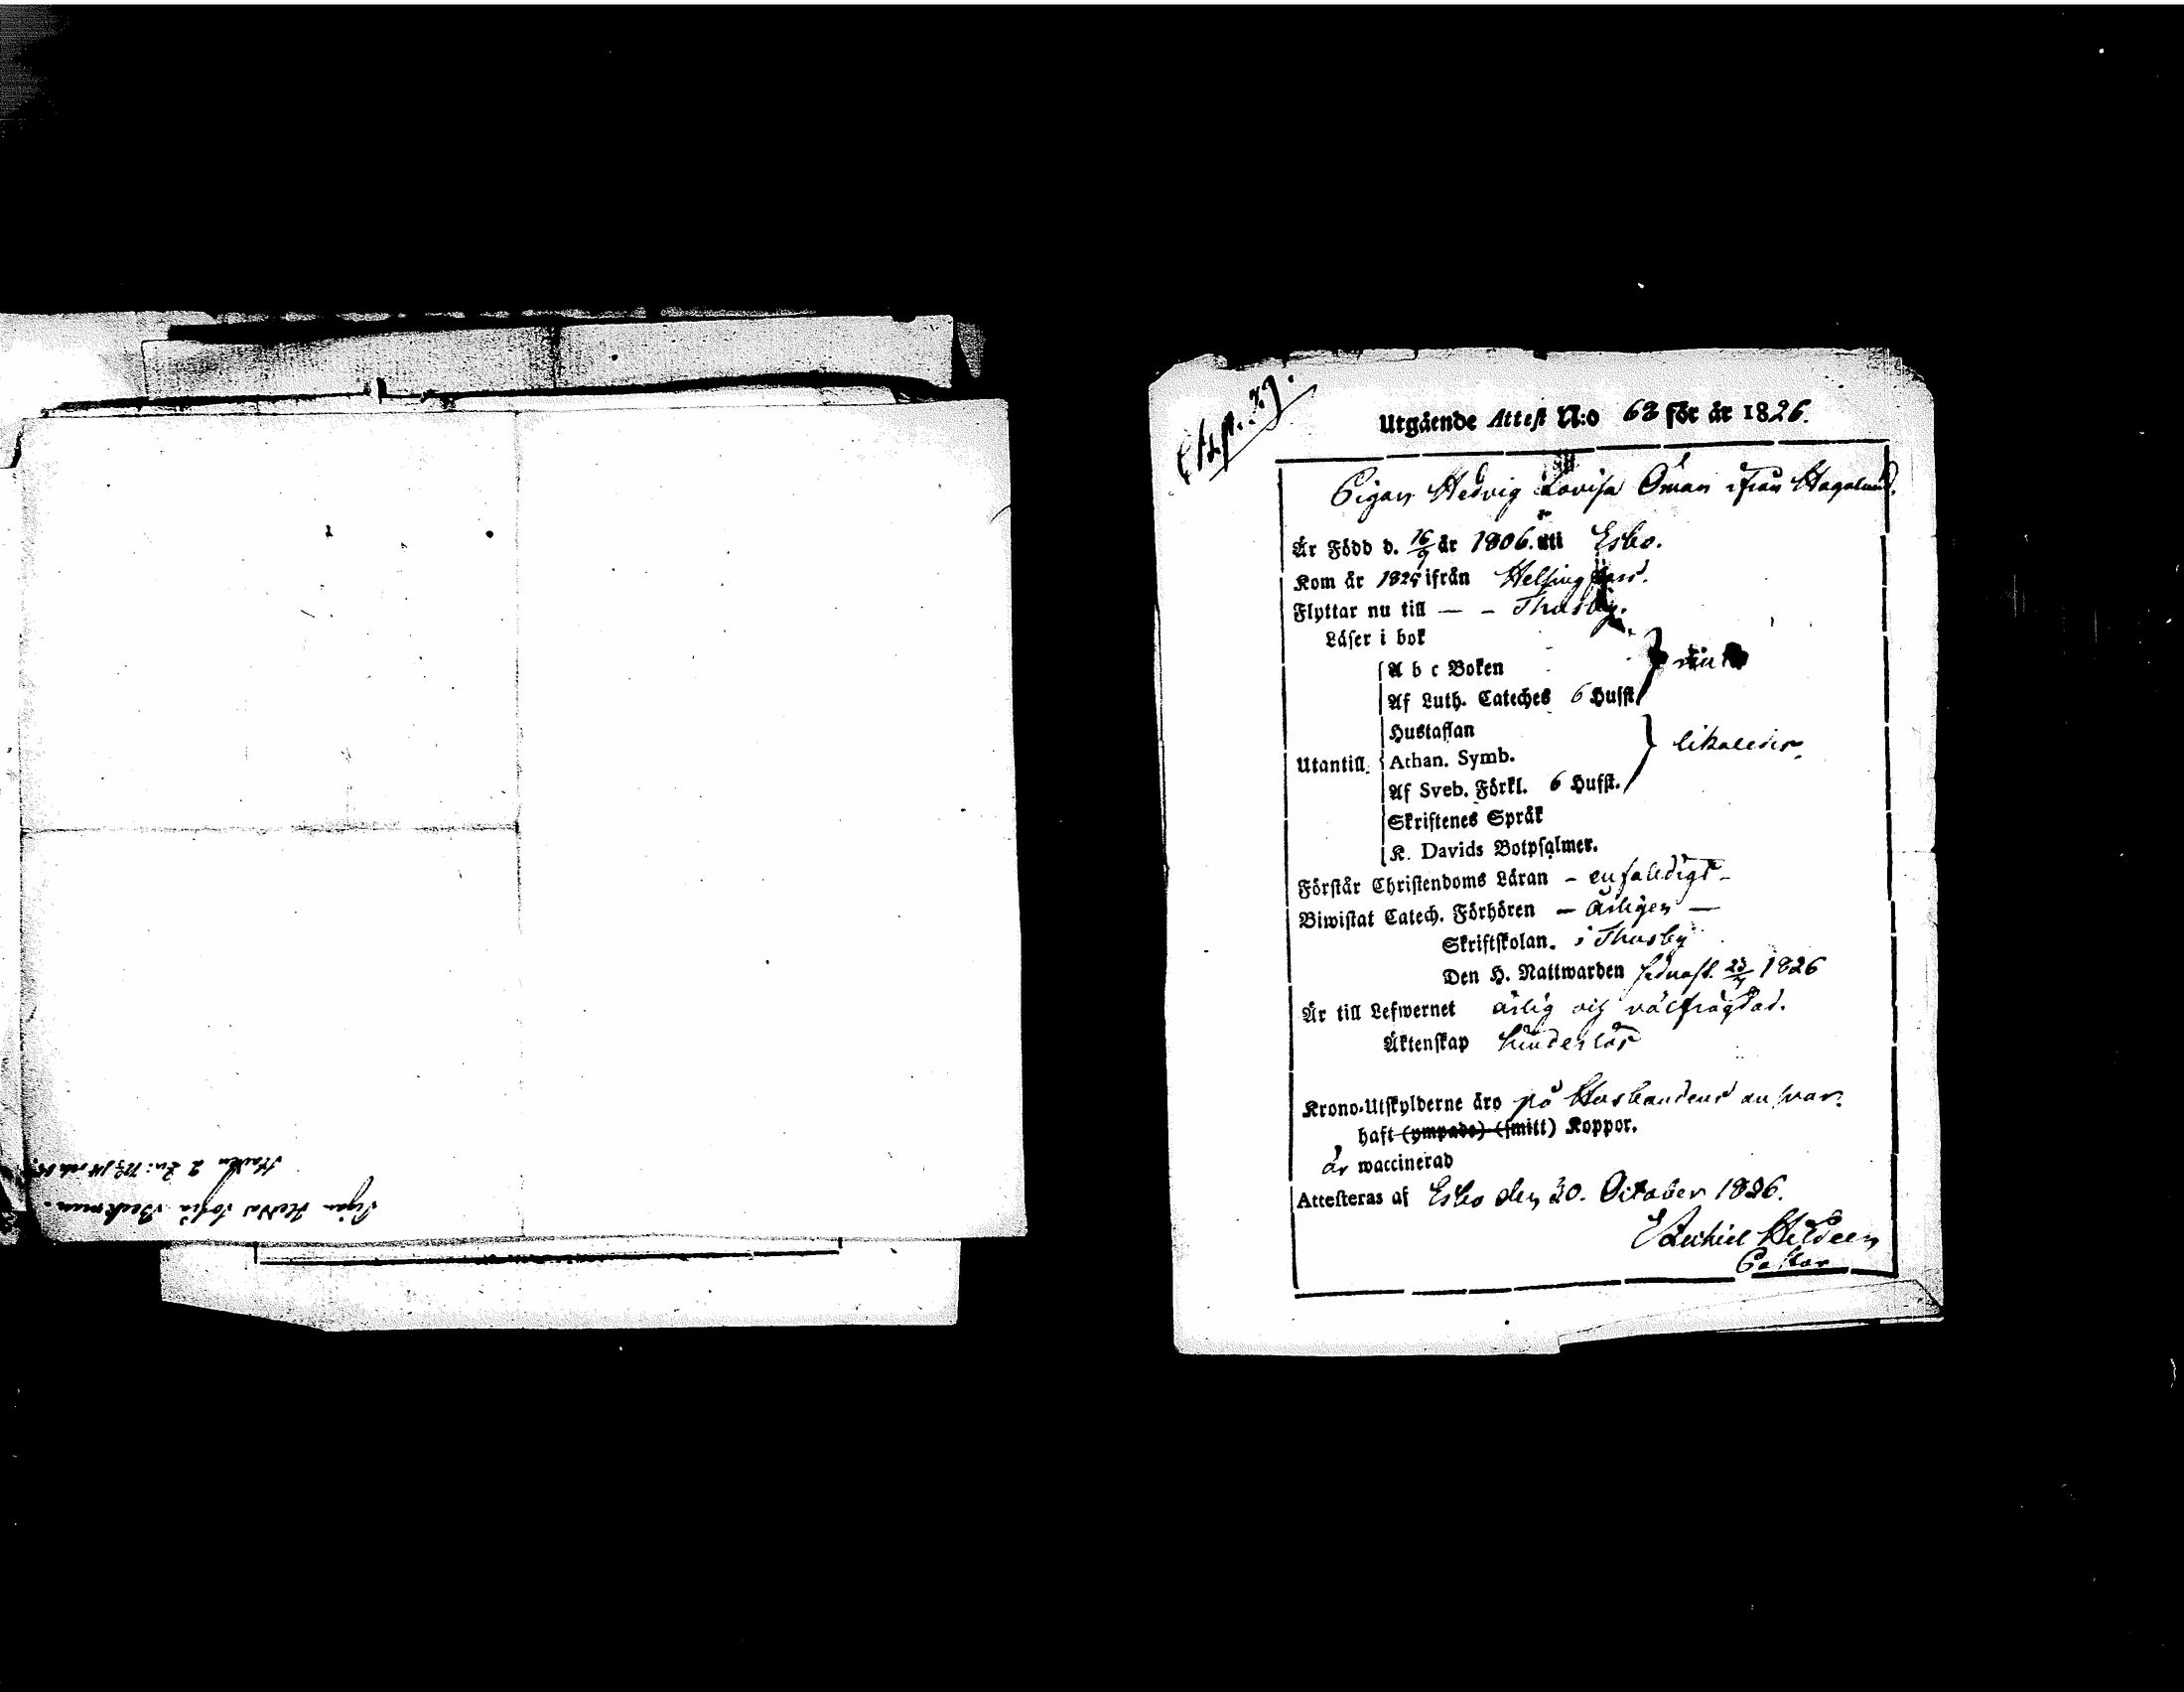 Pigan Hedda Sofia Beckman.
Utgående Attest N:o 68 för år 1826.
Pigan Hedvig Lovisa Öman ifrån Hagalund.
Är Född d. 16/9 år 1806. uti Esbo.
Kom år 1825 ifrån Helsingfors.
Flyttar nu till — – Thusby.
Läser i bok
A b c Boken
Af Luth. Cateches 6 Hufst
Hustaflan
likaledes
Utantill. Athan. Symb.
Af Sveb. Förkl. 6 Hufst.
Skriftenes Språk
K. Davids Botpsalmer.
Förstår Christendoms Läran – enfaldigt –
Biwistat Catech. Förhören — årligen —
Skriftskolan. i Thusby
Den H. Nattwarden sednast. 23/7 1826
Är till Lefwernet ärlig och välfrägdad.
Äktenskap hinderlös
Krono-Utskylderne äro på Husbondens answar.
haft (ympade) (smitt) Koppor.
är waccinerad
Attesteras af Esbo den 30. October 1826.
Ezechiel Hildeen
Pastor